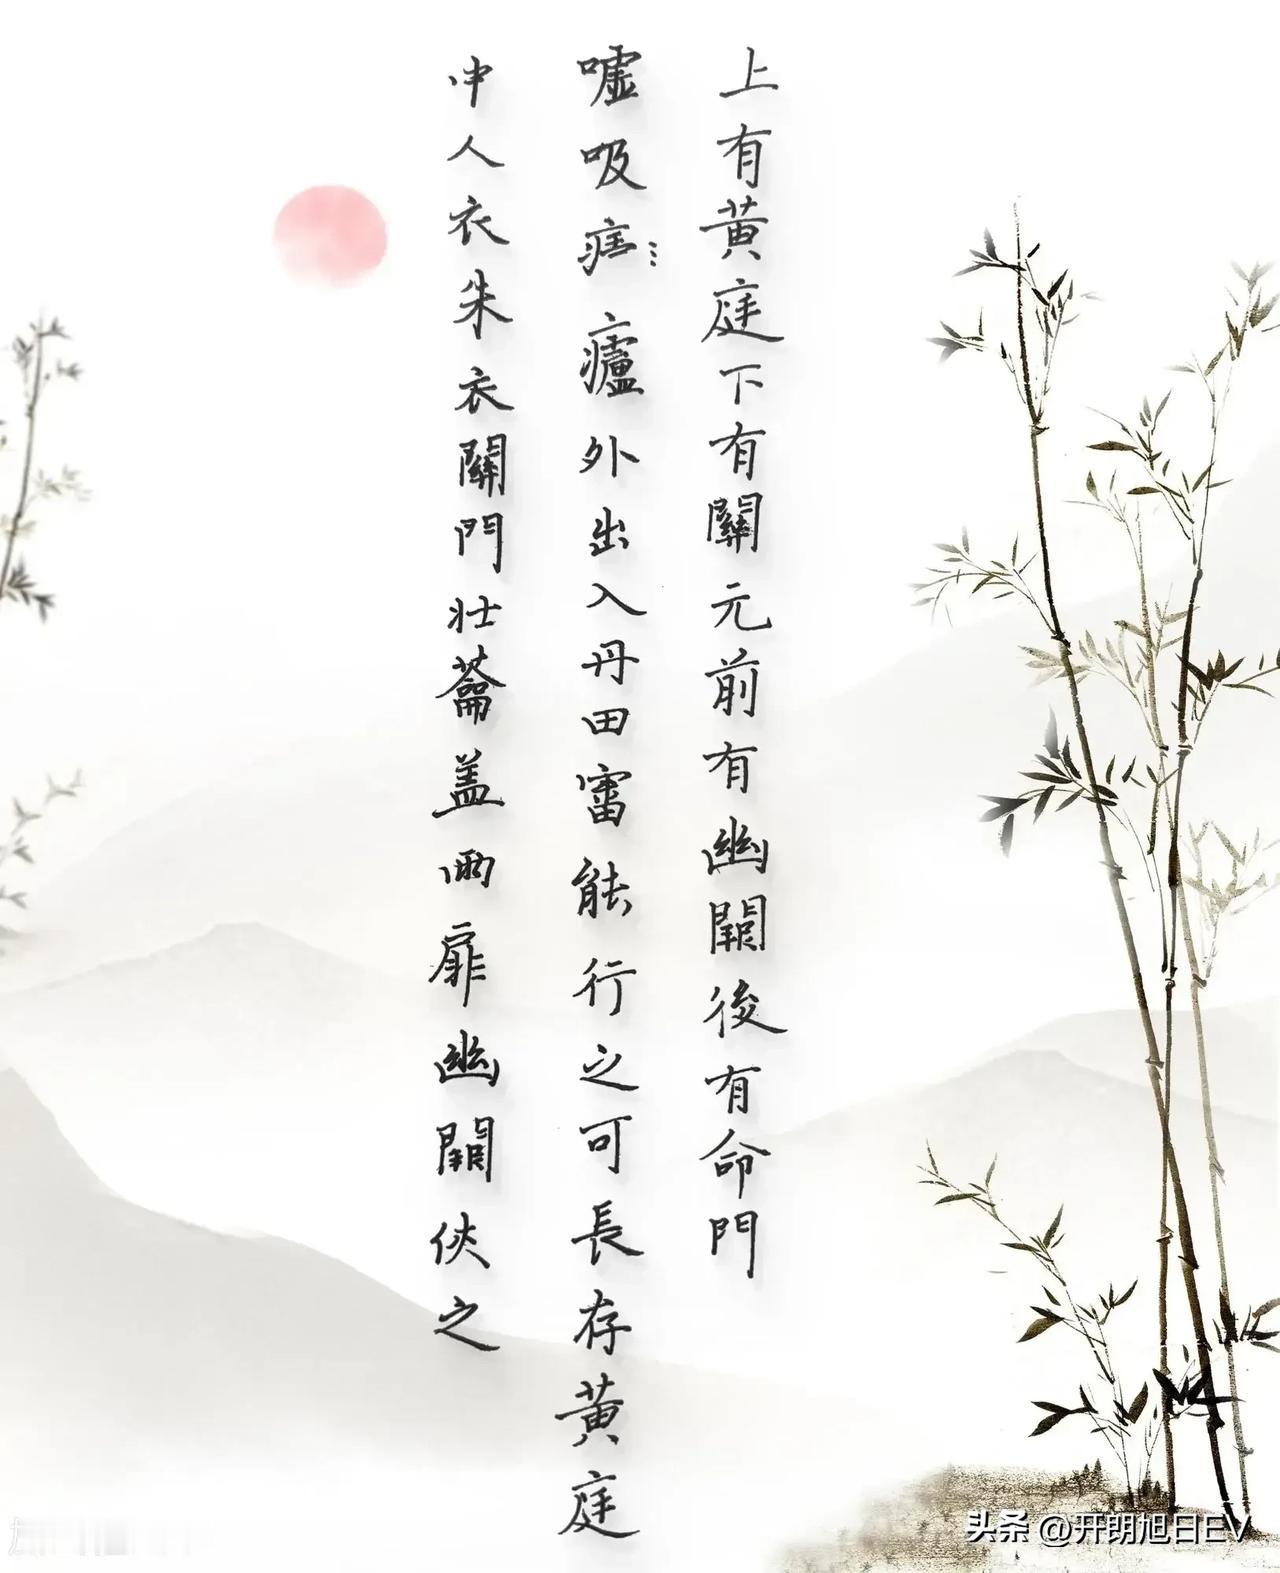 上有黄庭下有關元前有幽闕後有命門
嘘吸廬外出入丹田審能行之可長存黄庭
中人衣朱衣關門壮蘥盖兩扉幽闕侠之
头条 @开朗旭日EV